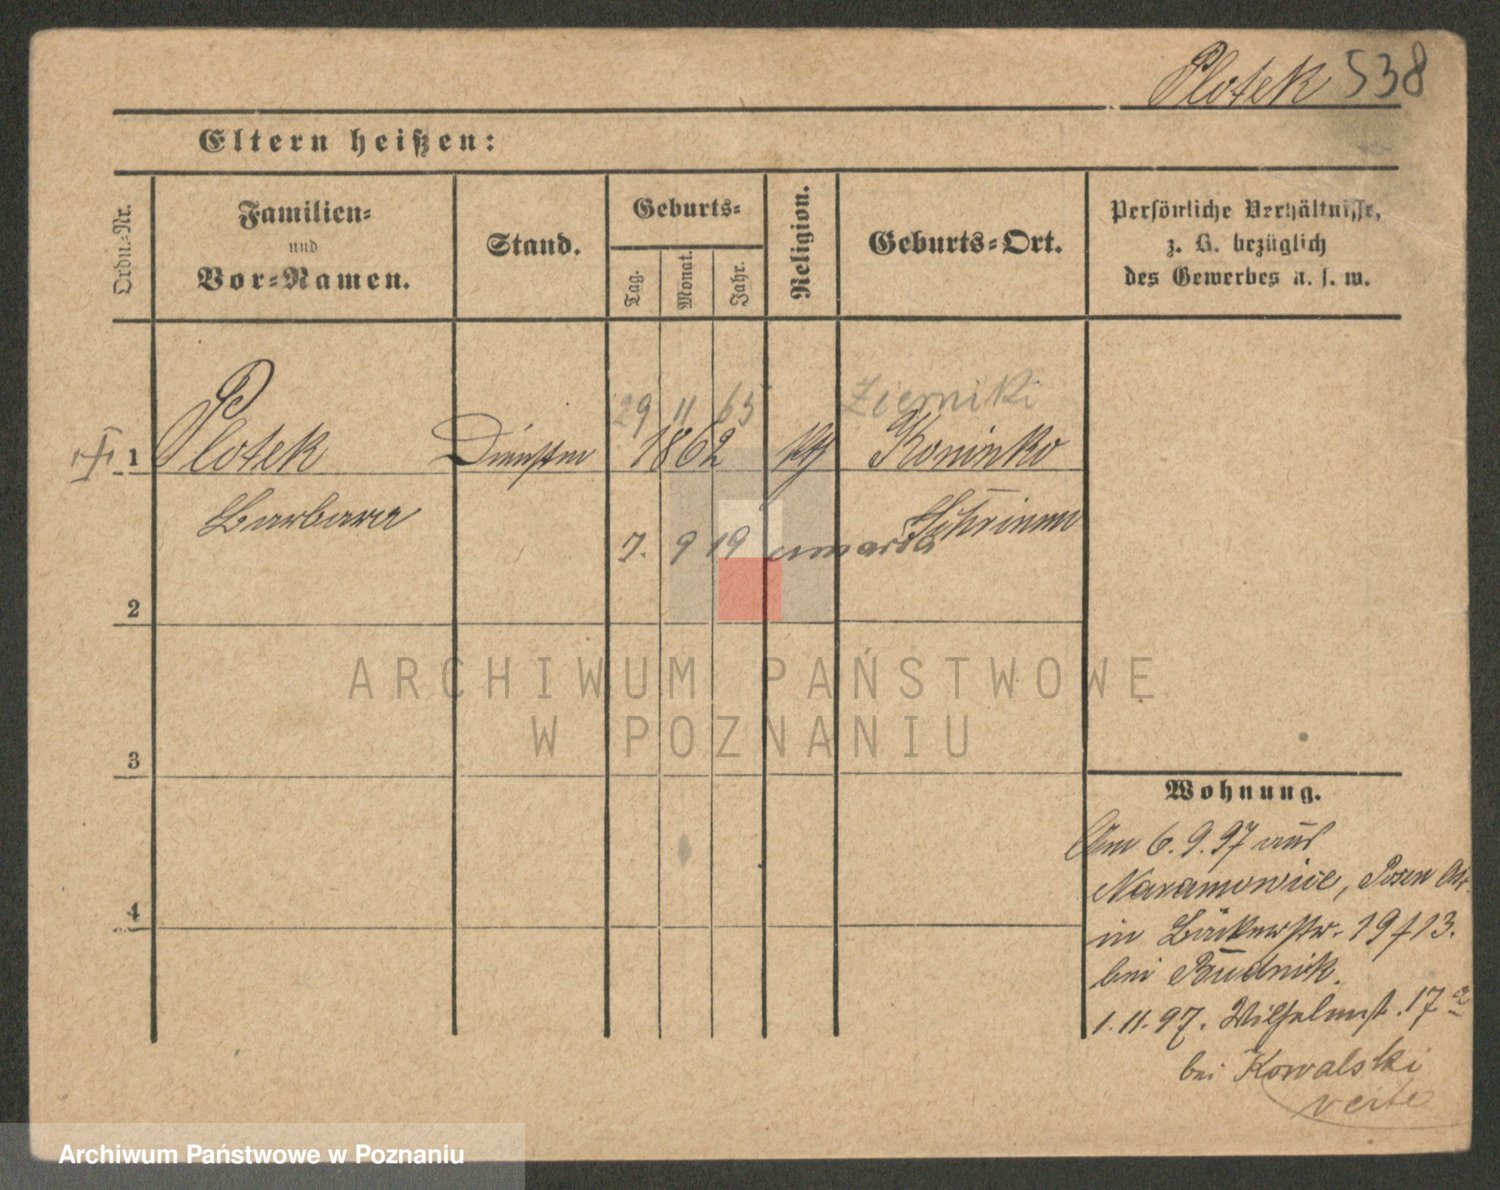 Plotek 538
Eltern heißen:
Ordn.-Nr.
Familien-
und
Vor-Namen.
Stand.
Geburts-
Tag.
Monat.
Jahr.
Religion.
Geburts-Ort.
Persönliche Verhältnisse,
z. B. bezüglich
des Gewerbes u. s. w.
29 11 65 Zierniki
1 Plotek 1862 Koninko
Barbara Schrimm
7. 9 19 umarła
2
ARCHIWUM PAŃSTWOWE
W POZNANIU
3
Wohnung.
Am 6.9.97 aus
Naramowice, Posen Ost
in Bäckerstr. 19 f 13.
bei Budnik.
4
1.11.97. Wilhelmst. 17 a
bei Kowalski
verte
Archiwum Państwowe w Poznaniu